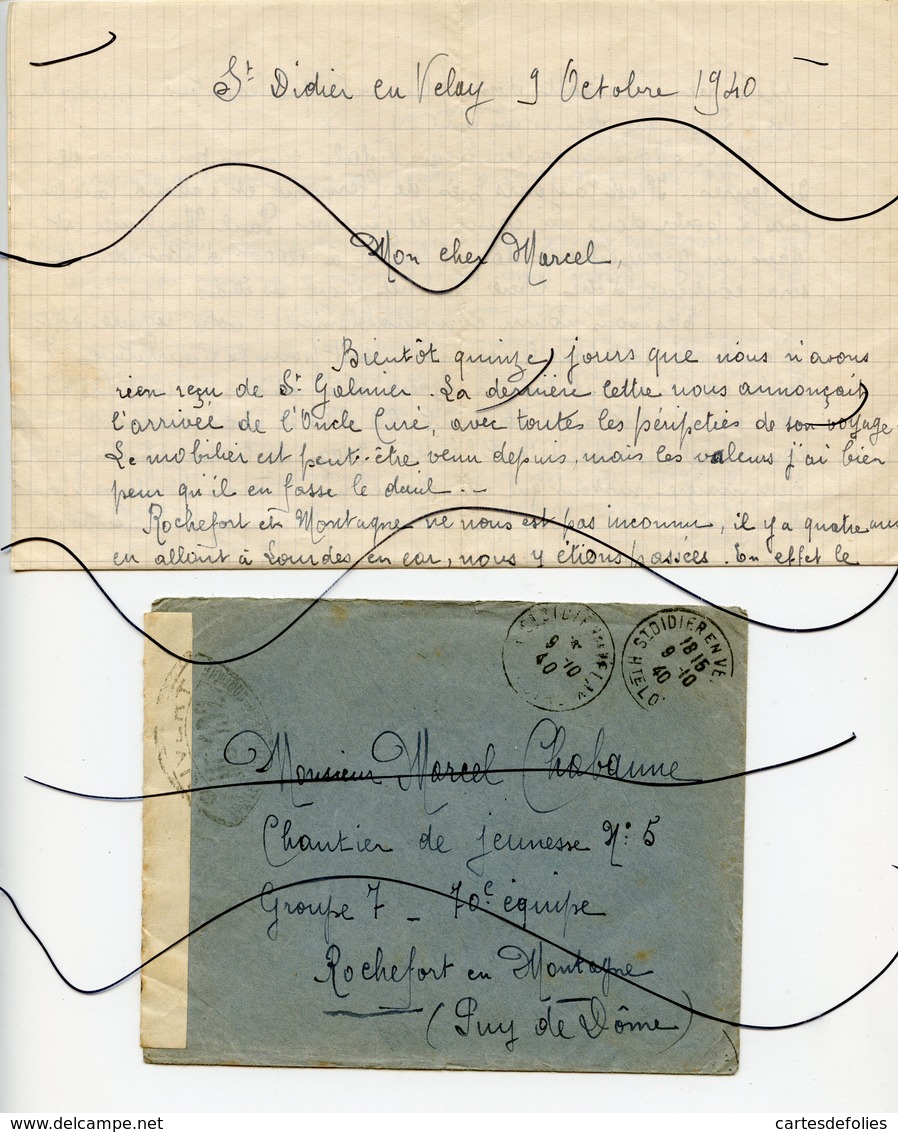 St Didier en Velay 9 Octobre 1940
Mon cher Marcel,
Bientôt quinze jours que nous n'avons
rien reçu de St Galmier. La dernière lettre nous annonçait
l'arrivée de l'Oncle Curé, avec toutes les péripeties de son voyage.
Le mobilier est peut-être venu depuis, mais les valeurs j'ai bien
peur qu'il en fasse le deuil.
Rochefort en Montagne ne nous est pas inconnu, il y a quatre ans
en allant à Lourdes en car, nous y étions passées. En effet le
ST DIDIER EN VE
18 15
9 -10
40
HTE LO
9 -10
40
Monsieur Marcel Chabanne
Chantier de jeunesse N° 5
Groupe 7 - 70e équipe
Rochefort en Montagne
(Puy de Dôme)
www.delcampe.net
cartesdefolies